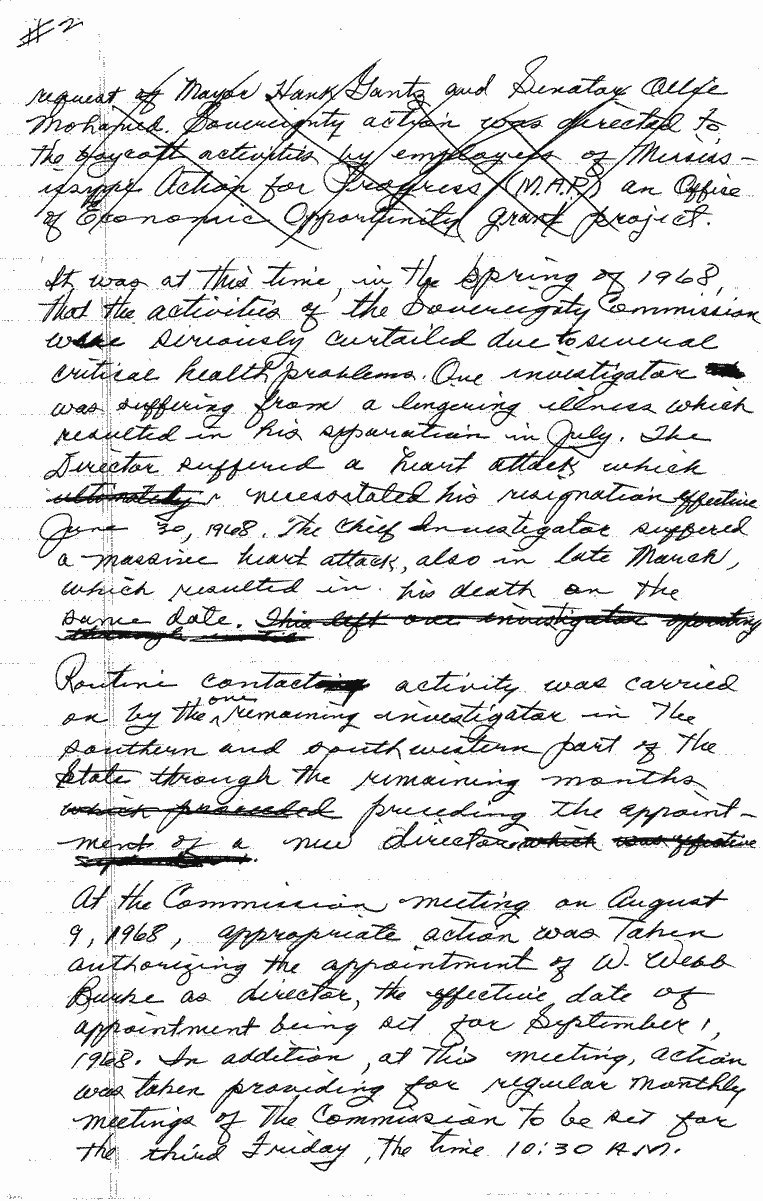 #2
request of Mayor Hank Gantz and Senator Ollie
Mohamed. Sovereignty action was directed to
the boycott activities by employees of Missis-
issippi Action for Progress (M.A.P.) an Office
of Economic Opportunity grant project.
It was at this time, in the Spring of 1968,
that the activities of the Sovereignty Commission
were seriously curtailed due to several
critical health problems. One investigator
was suffering from a lingering illness which
resulted in his separation in July. The
Director suffered a heart attack which
ultimately necessotated his resignation effective
June 30, 1968. The Chief Investigator suffered
a massive heart attack, also in late March,
which resulted in his death on the
same date. This left one investigator operating
through
Routine contact activity was carried
on by the one remaining investigator in the
southern and southwestern part of the
State through the remaining months
which preceeded preceding the appoint-
ment of a new director which was effective
At the Commission meeting on August
9, 1968, appropriate action was taken
authorizing the appointment of W. Webb
Burke as director, the effective date of
appointment being set for September 1,
1968. In addition, at this meeting, action
was taken providing for regular monthly
meetings of the Commission to be set for
the third Friday, the time 10:30 A.M.